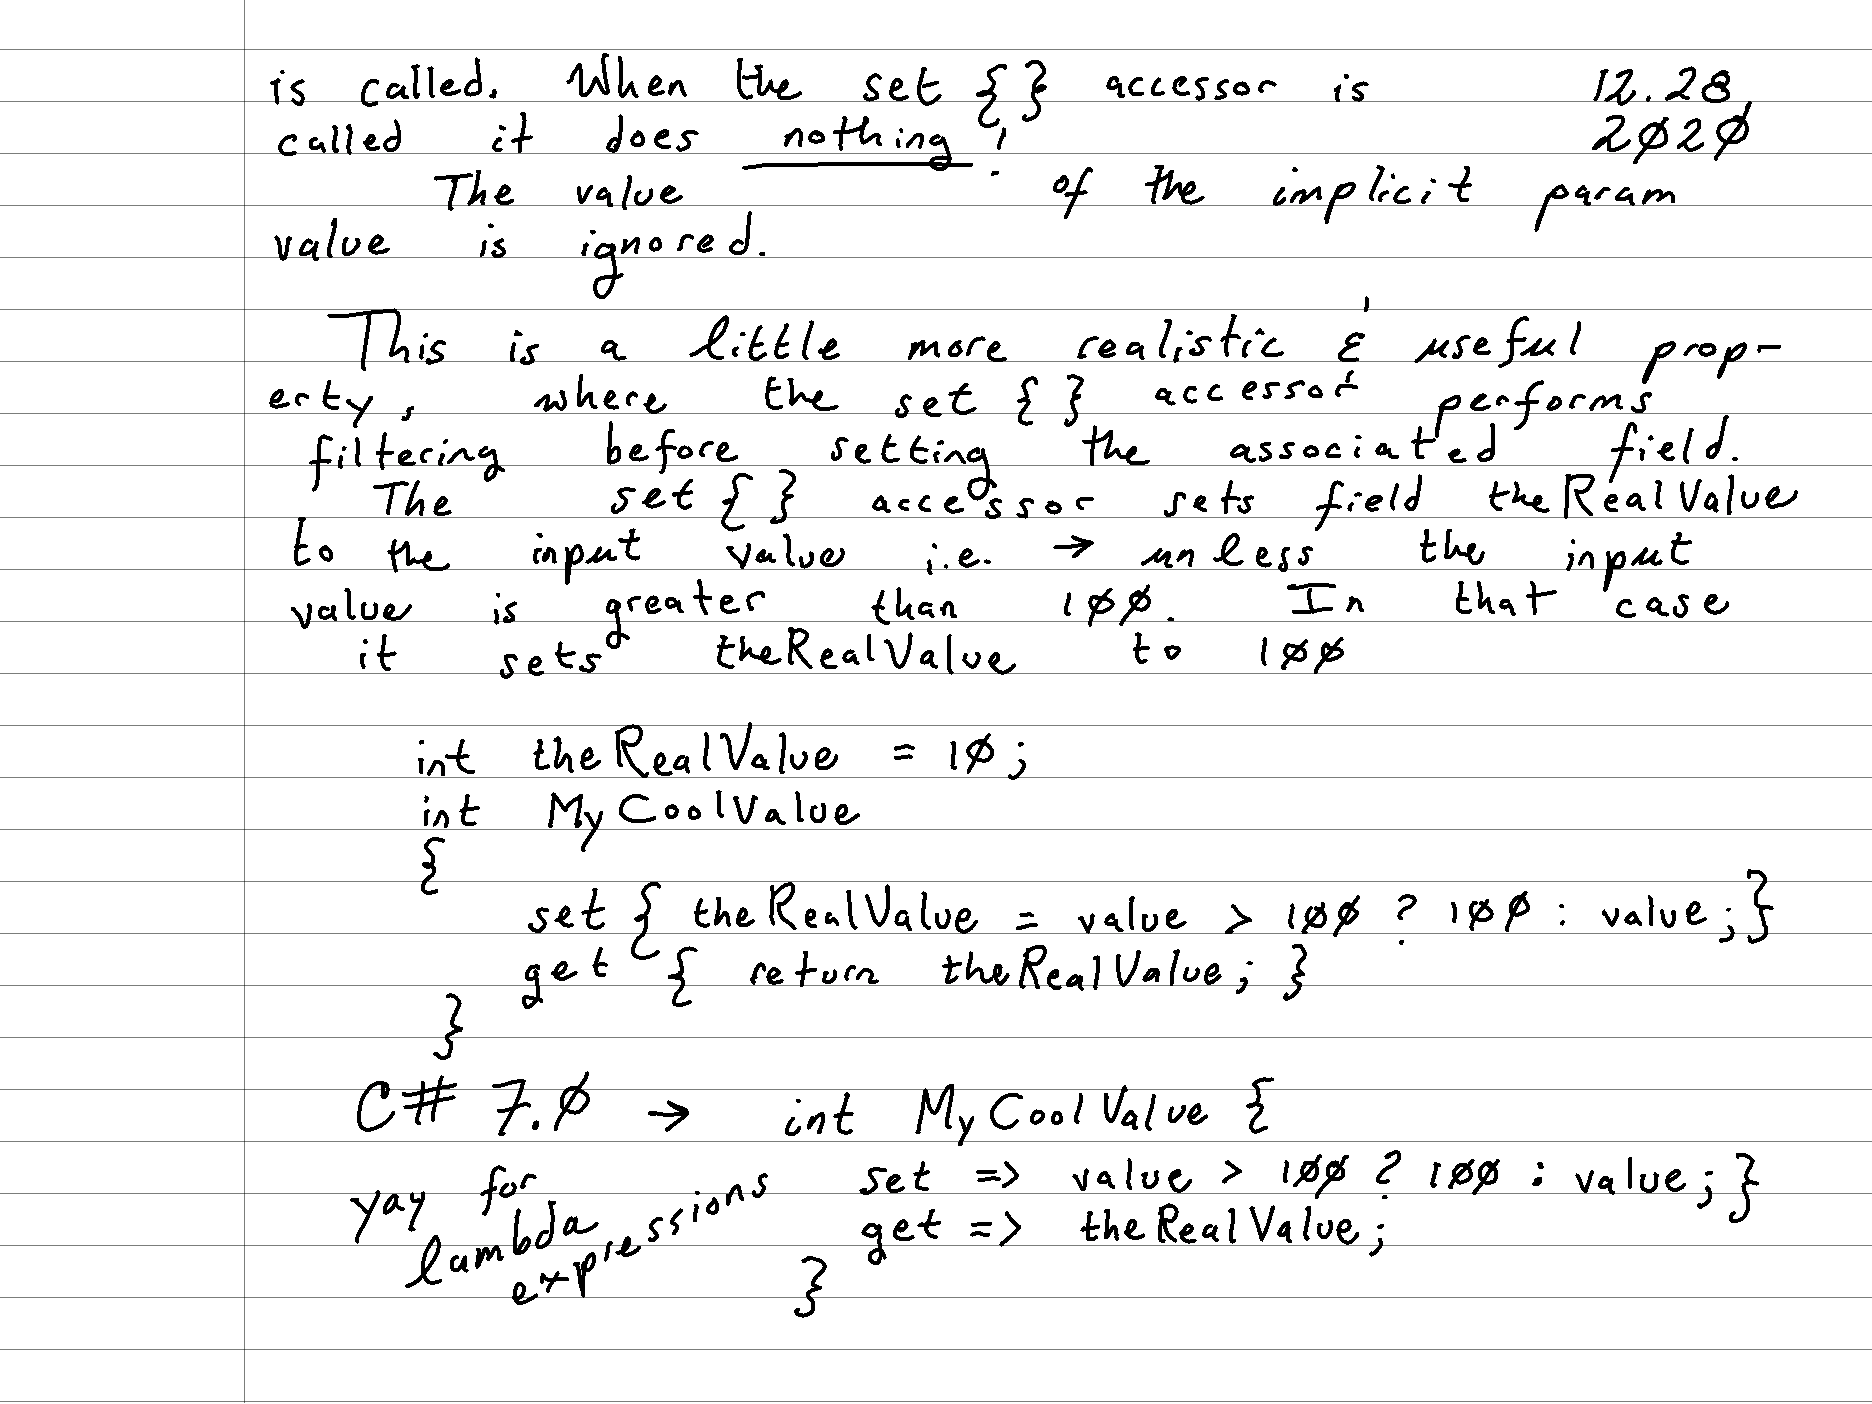 is called. When the set { } accessor is 12.28
called it does nothing! 2020
The value of the implicit param
value is ignored.
This is a little more realistic & useful prop-
erty, where the set { } accessor performs
filtering before setting the associated field.
The set { } accessor sets field theRealValue
to the input value i.e. → unless the input
value is greater than 100. In that case
it sets theRealValue to 100
int theRealValue = 10;
int MyCoolValue
{
set { theRealValue = value > 100 ? 100 : value; }
get { return theRealValue; }
}
C# 7.0 → int MyCoolValue {
yay for set => value > 100 ? 100 : value; }
lambda get => theRealValue;
expressions }